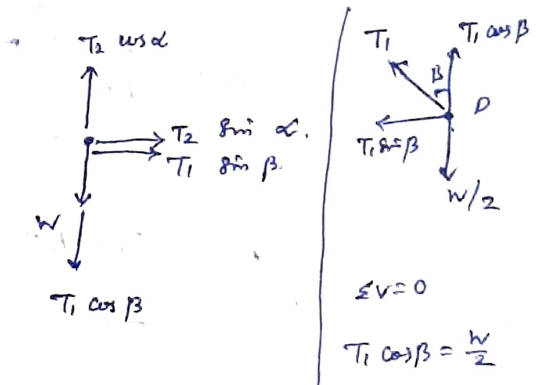 T₂ cosα
T₂ sin α.
T₁ sin β.
W
T₁ cos β
T₁ cosβ
T₁
β
D
T₁ sinβ
W/2
ΣV=0
T₁ cosβ = W/2